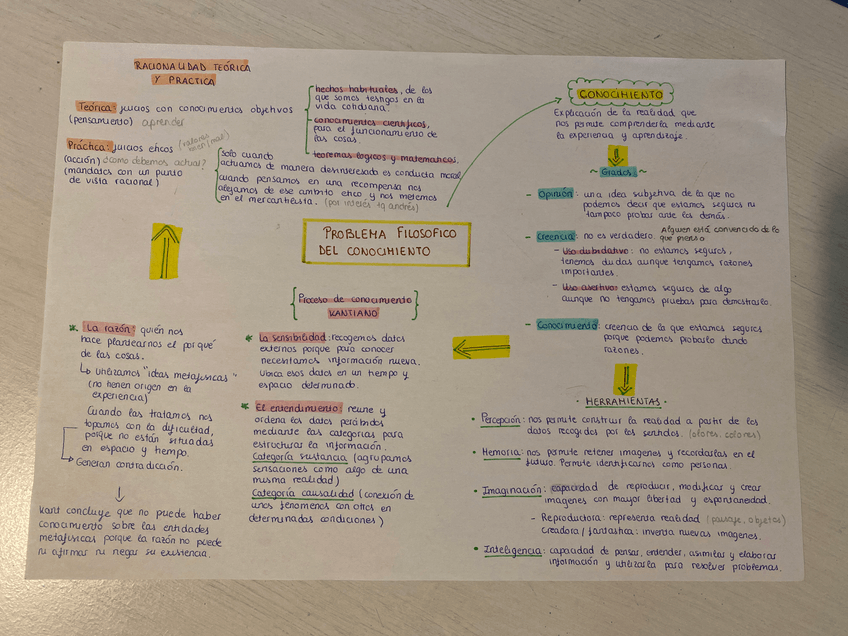 RACIONALIDAD TEÓRICA
Y PRACTICA
Teórica: juicios con conocimientos objetivos
(pensamiento) aprender
hechos habituales, de los
que somos testigos en la
vida cotidiana.
conocimientos científicos,
para el funcionamiento de
las cosas.
teoremas lógicos y matemáticos.
Práctica: juicios éticos (valores bien/mal)
(acción) ¿como debemos actuar?
(mandatos con un punto
de vista racional)
solo cuando
actuamos de manera desinteresada es conducta moral
cuando pensamos en una recompensa nos
alejamos de ese ambito etico y nos metemos
en el mercantilista. (por interés tq andrés)
PROBLEMA FILOSOFICO
DEL CONOCIMIENTO
CONOCIMIENTO
Explicación de la realidad que
nos permite comprenderla mediante
la experiencia y aprendizaje.
~ Grados ~
- Opinión: una idea subjetiva de la que no
podemos decir que estamos seguros ni
tampoco probar ante los demás.
- Creencia: no es verdadero. Alguien está convencido de lo
que piensa
- Uso dubidativo: no estamos seguros,
tenemos dudas aunque tengamos razones
importantes.
- Uso asertivo: estamos seguros de algo
aunque no tengamos pruebas para demostrarlo.
- Conocimiento: creencia de la que estamos seguros
porque podemos probarlo dando
razones.
· HERRAMIENTAS ·
• Percepción: nos permite construir la realidad a partir de los
datos recogidos por los sentidos. (olores, colores)
• Memoria: nos permite retener imagenes y recordarlas en el
futuro. Permite identificarnos como personas.
• Imaginación: capacidad de reproducir, modificar y crear
imagenes con mayor libertad y espontaneidad.
- Reproductora: representa realidad (paisaje, objetos)
Creadora / fantastica: inventa nuevas imagenes.
• Inteligencia: capacidad de pensar, entender, asimilar y elaborar
información y utilizarla para resolver problemas.
Proceso de conocimiento
KANTIANO
* La sensibilidad: recogemos datos
externos porque para conocer
necesitamos información nueva.
Ubica esos datos en un tiempo y
espacio determinado.
* El entendimiento: reune y
ordena los datos percibidos
mediante las categorias para
estructurar la información.
Categoría sustancia (agrupamos
sensaciones como algo de una
misma realidad)
Categoría causalidad (conexión de
unos fenomenos con otros en
determinadas condiciones)
* La razón: quién nos
hace plantearnos el por qué
de las cosas.
↳ Utilizamos "ideas metafisicas"
(no tienen origen en la
experiencia)
Cuando las tratamos nos
topamos con la dificultad,
porque no están situadas
en espacio y tiempo.
Generan contradicción.
Kant concluye que no puede haber
conocimiento sobre las entidades
metafisicas porque la razón no puede
ni afirmar ni negar su existencia.